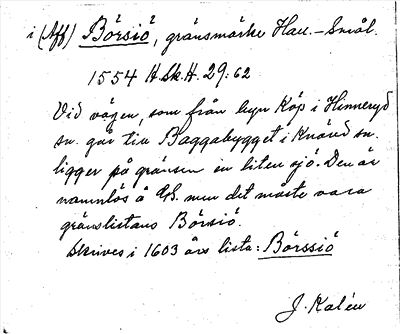 i (Aff) Börsiö, gränsmärke Hall.-Smål.
1554 H.Sk.H. 29:62
Vid vägen, som från byn Köp i Hinneryd
sn. går till Baggabygget i Knäred sn.
ligger på gränsen en liten sjö. Den är
namnlös å GS. men det måste vara
gränslistans Börsiö.
Skrives i 1603 års lista: Börssiö
J. Kalén